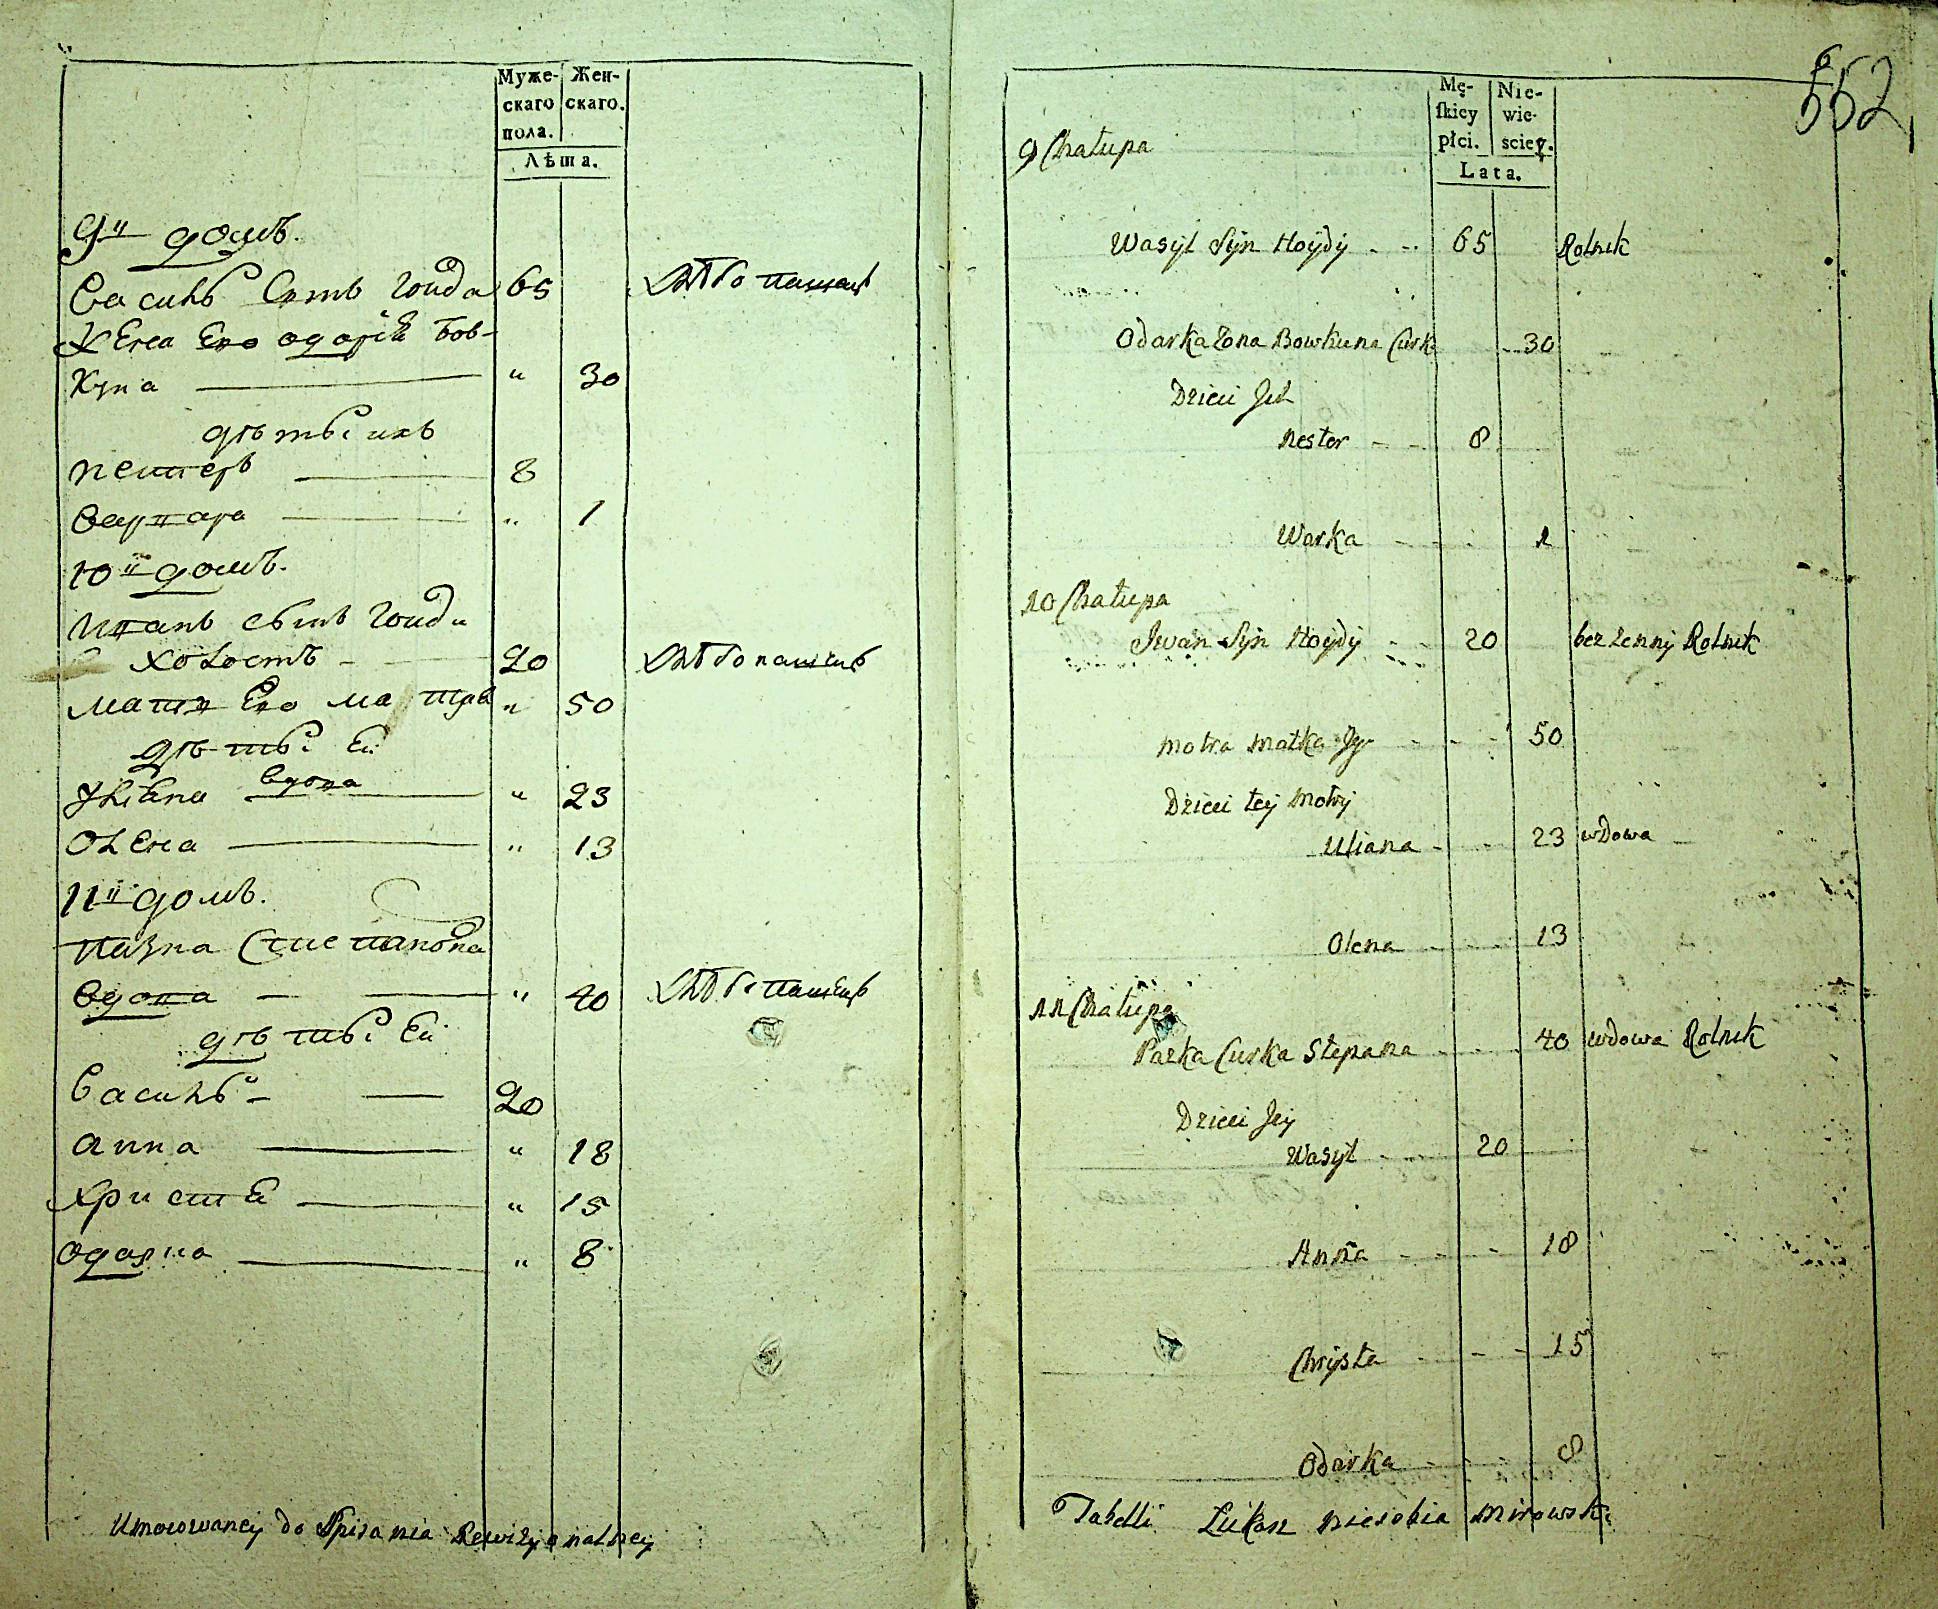 Муже-
скаго
пола.
Жен-
скаго.
Лѣта.
9й домъ.
Василь Сынъ Гойда 65 Хлѣбопашецъ
Жена Его одарїя Бов-
куна " 30
дѣтьi ихъ
нестеръ 8
варвара " 1
10й домъ.
иванъ сынъ Гойди
холостъ 20 Хлѣбопашецъ
мати Его мотря " 50
дѣтьi Ей
улїана вдова " 23
олена " 13
11й домъ.
пазка Степанова
вдова " 40 Хлѣбопашецъ
дѣтьi Ей
василь 20
анна " 18
христя " 15
одарка " 8
Umocowaney do Spisania Rewizyonalney
552
Mę-
skiey
płci.
Nie-
wie-
sciey.
Lata.
9 Chałupa
Wasyl Syn Hoydy 65 Rolnik
Odarka Żona Bowkuna Curka 30
Dzieci Jch
Nester 8
Warka 1
10 Chałupa
Jwan Syn Hoydy 20 bezżenny Rolnik
Motra Matka Jego 50
Dzieci tey Motry
Uliana 23 wdowa
Olena 13
11 Chałupa
Pazka Curka Stepana 40 wdowa Rolnik
Dzieci Jey
Wasyl 20
Anna 18
Chrysta 15
Odarka 8
Tabelli Łukasz Mirowski